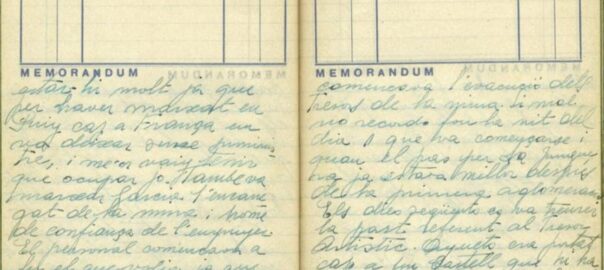 MEMORANDUM
estar hi molt ja que
per haver marxat en
Puig cap a França em
va deixar sense
i me'n vaig tenir
que ocupar jo. També va
marxar Garcia l'encarre
gat de la mina i home
de confiança de l'enginyer
El personal comensava a
MEMORANDUM
comencava l'evacuació dels
tresors de la mina. Si mal
no recordo fou la nit del
dia 1 que va començarse i
quan el pas per La
ra ja estava millor després
de la primera aglomeració
Els dies següents es va treure
la part referent al Tresor
Artistic. Aquets era portat
cap a un Castell que hi ha